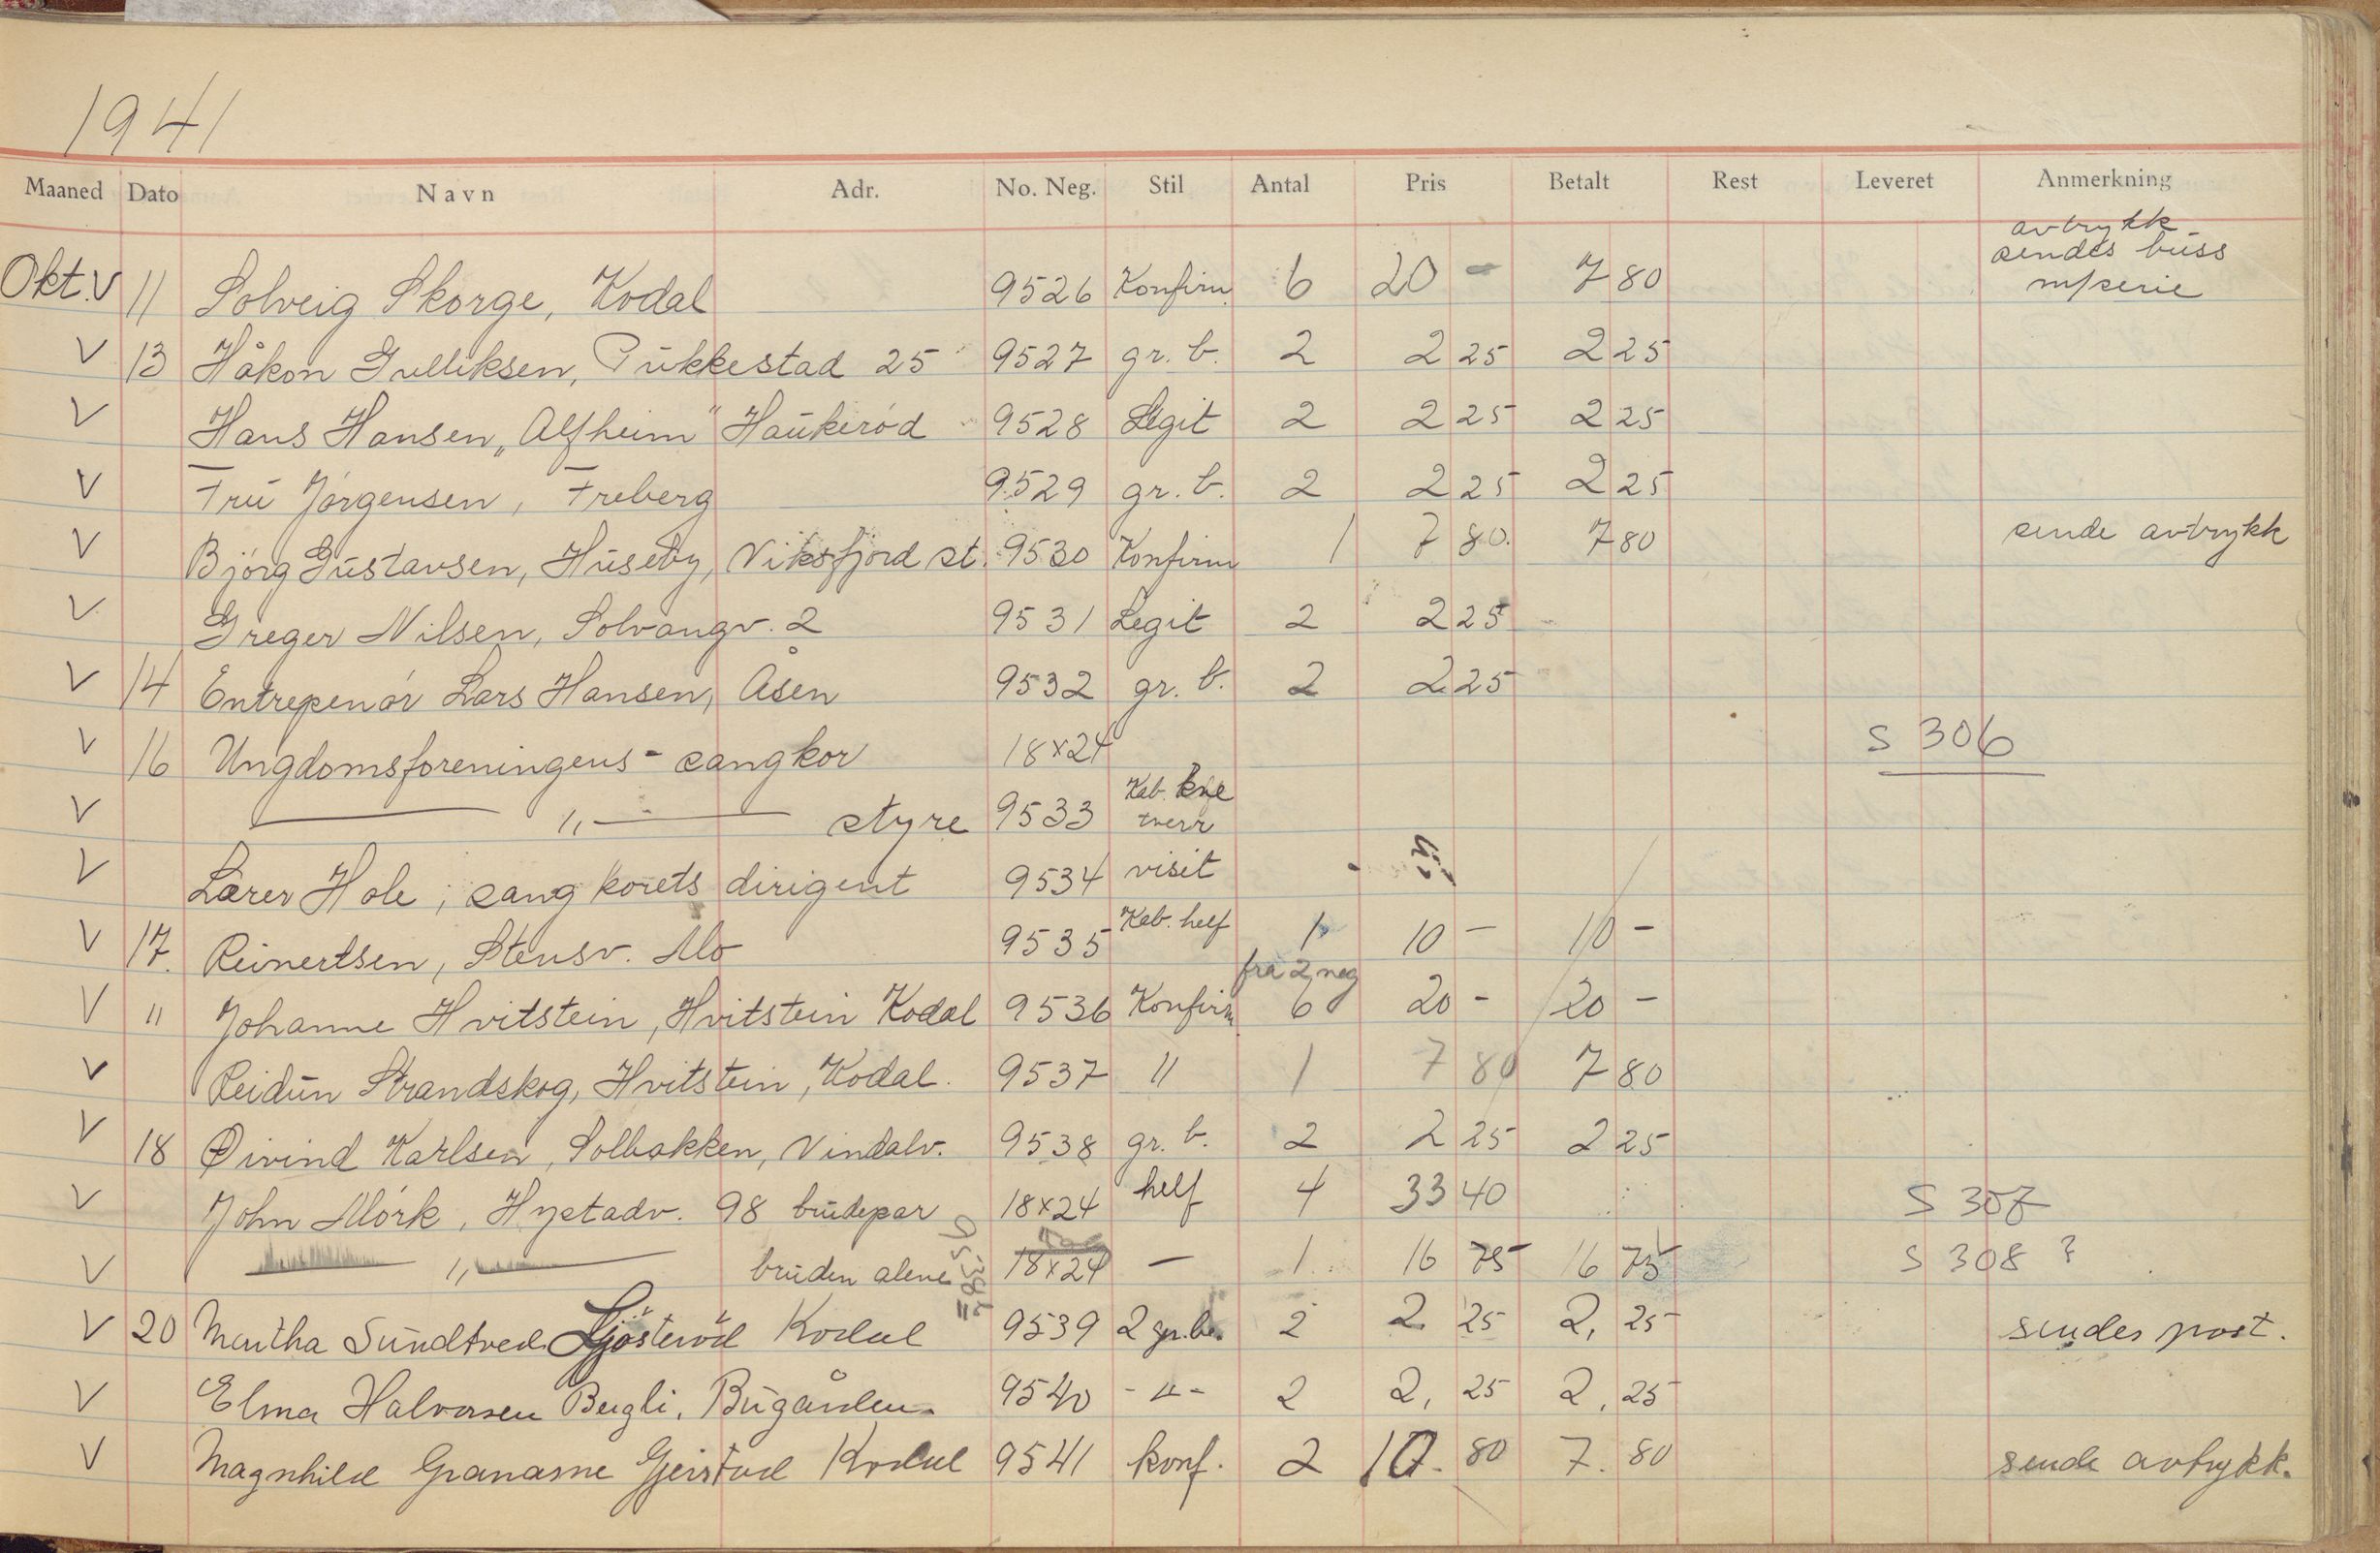 1941
Maaned Dato Navn Adr. No. Neg. Stil Antal Pris Betalt Rest Leveret Anmerkning
avtrykk
sendes buss
m/serie
Okt. V 11 Solveig Skorge, Kodal 9526 Konfirm. 6 20 - 7 80
V 13 Håkon Gulliksen, Pukkestad 25 9527 gr. b. 2 2 25 2 25
V Hans Hansen, „Alfheim" Haukerød 9528 Legit 2 2 25 2 25
V Fru Jørgensen, Freberg 9529 gr. b. 2 2 25 2 25
V Bjørg Gustavsen, Huseby, Viksfjord st. 9530 Konfirm 1 7 80. 7 80 sende avtrykk
V Greger Nilsen, Solvangv. 2 9531 Legit 2 2 25
V 14 Entrepenør Lars Hansen, Åsen 9532 gr. b. 2 2 25
V 16 Ungdomsforeningens - sangkor 18x24 S 306
V — " — styre 9533 Kab. kne tverr
V Lærer Hole, sangkorets dirigent 9534 visit
V 17. Reinertsen, Stensv. Mo 9535 Kab. helf 1 10 - 10 -
fra 2 neg
V " Johanne Hvitstein, Hvitstein Kodal 9536 Konfirm 6 20 - 20 -
V Reidun Strandskog, Hvitstein, Kodal. 9537 " 1 7 80 7 80
V 18 Øivind Karlsen, Solbakken, Vindalv. 9538 gr. b. 2 2 25 2 25
V John Mørk, Hystadv. 98 brudepar 18x24 helf 4 33 40 S 307
V — " — bruden alene 18x24 — 1 16 75 16 75 S 308 ?
V 20 Martha Sundtved Kodal 9539 2 gr.b. 2 2 25 2, 25 sendes post.
V Elma Halvorsen Bugli, Bugården. 9540 - " - 2 2, 25 2, 25
V Magnhild Granasne Gjerstad Kodal 9541 konf. 2 10. 80 7. 80 sende avtrykk.